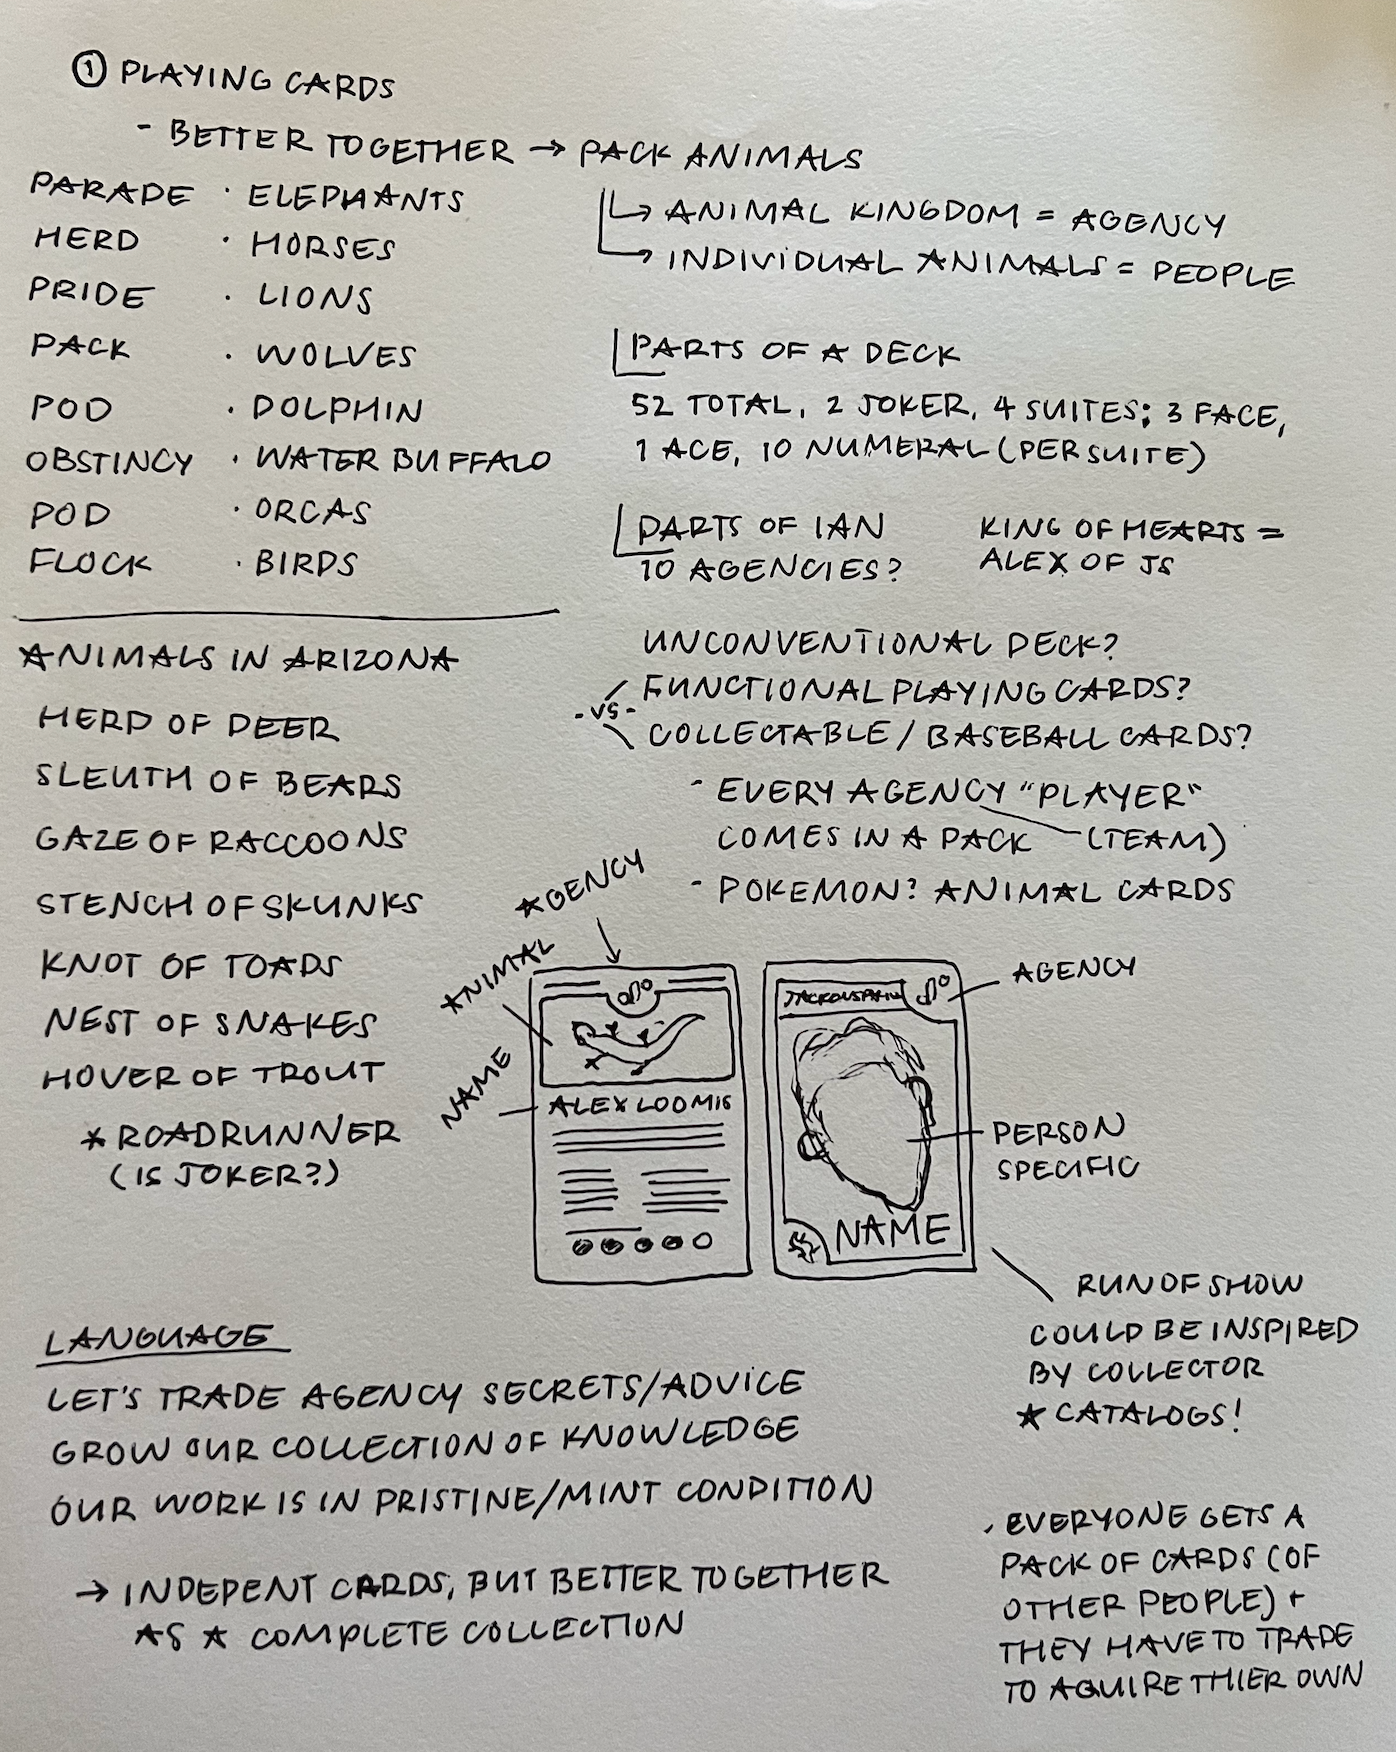 ① PLAYING CARDS
- BETTER TOGETHER → PACK ANIMALS
PARADE · ELEPHANTS
HERD · HORSES
PRIDE · LIONS
PACK · WOLVES
POD · DOLPHIN
OBSTINCY · WATER BUFFALO
POD · ORCAS
FLOCK · BIRDS
↳ ANIMAL KINGDOM = AGENCY
↳ INDIVIDUAL ANIMALS = PEOPLE
PARTS OF A DECK
52 TOTAL, 2 JOKER, 4 SUITES; 3 FACE,
1 ACE, 10 NUMERAL (PER SUITE)
PARTS OF IAN
10 AGENCIES?
KING OF HEARTS =
ALEX OF JS
UNCONVENTIONAL DECK?
FUNCTIONAL PLAYING CARDS?
- VS -
COLLECTABLE / BASEBALL CARDS?
- EVERY AGENCY "PLAYER"
COMES IN A PACK (TEAM)
- POKEMON? ANIMAL CARDS
ANIMALS IN ARIZONA
HERD OF DEER
SLEUTH OF BEARS
GAZE OF RACCOONS
STENCH OF SKUNKS
KNOT OF TOADS
NEST OF SNAKES
HOVER OF TROUT
* ROADRUNNER
(IS JOKER?)
AGENCY
ANIMAL
NAME
ALEX LOOMIS
AGENCY
PERSON
SPECIFIC
NAME
RUN OF SHOW
COULD BE INSPIRED
BY COLLECTOR
★ CATALOGS!
LANGUAGE
LET'S TRADE AGENCY SECRETS/ADVICE
GROW OUR COLLECTION OF KNOWLEDGE
OUR WORK IS IN PRISTINE/MINT CONDITION
→ INDEPENT CARDS, BUT BETTER TOGETHER
AS A COMPLETE COLLECTION
· EVERYONE GETS A
PACK OF CARDS (OF
OTHER PEOPLE) +
THEY HAVE TO TRADE
TO AQUIRE THIER OWN